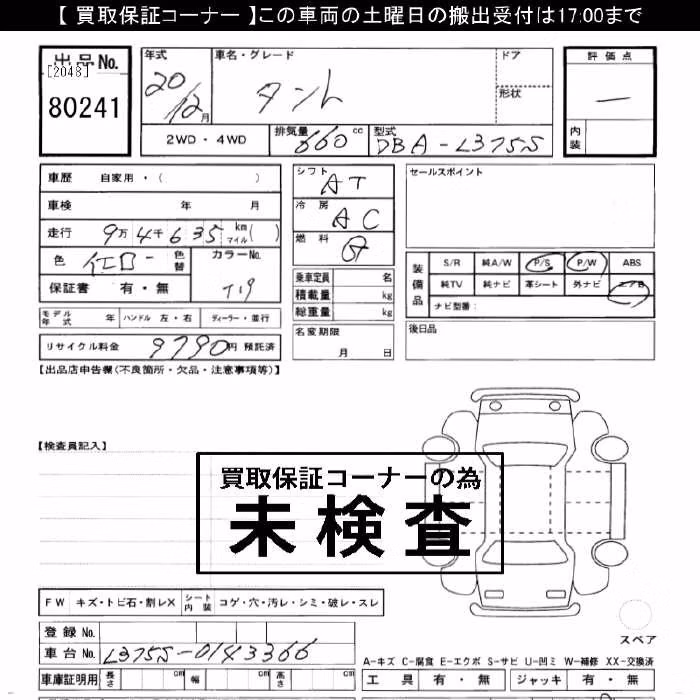 【 買取保証コーナー 】この車両の土曜日の搬出受付は17:00まで
出品No.
[2048]
80241
年式
20/12月
車名・グレード
タント
ドア
形状
評価点
—
内装
2WD・4WD
排気量 660 cc
型式 DBA-L375S
車歴 自家用・( )
車検 年 月
走行 9万4千635 km マイル( )
色 色替
カラーNo.
T19
保証書 有・無
シフト AT
冷房 AC
燃料
乗車定員 名
積載量 kg
総重量 kg
名変期限
月 日
セールスポイント
装備品
S/R 純A/W P/S P/W ABS
純TV 純ナビ 革シート 外ナビ エアB
ナビ型番:
後日品
モデル年式 年 ハンドル 左・右 ディーラー・並行
リサイクル料金 9790円 預託済
【出品店申告欄(不良箇所・欠品・注意事項等)】
【検査員記入】
買取保証コーナーの為
未検査
FW キズ・トビ石・割レX シート内装 コゲ・穴・汚レ・シミ・破レ・スレ
スペア
登録No.
車台No. L375S-0143366
A-キズ C-腐食 E-エクボ S-サビ U-凹ミ W-補修 XX-交換済
車庫証明用 長さ cm 幅 cm 高さ cm
工具 有・無 ジャッキ 有・無